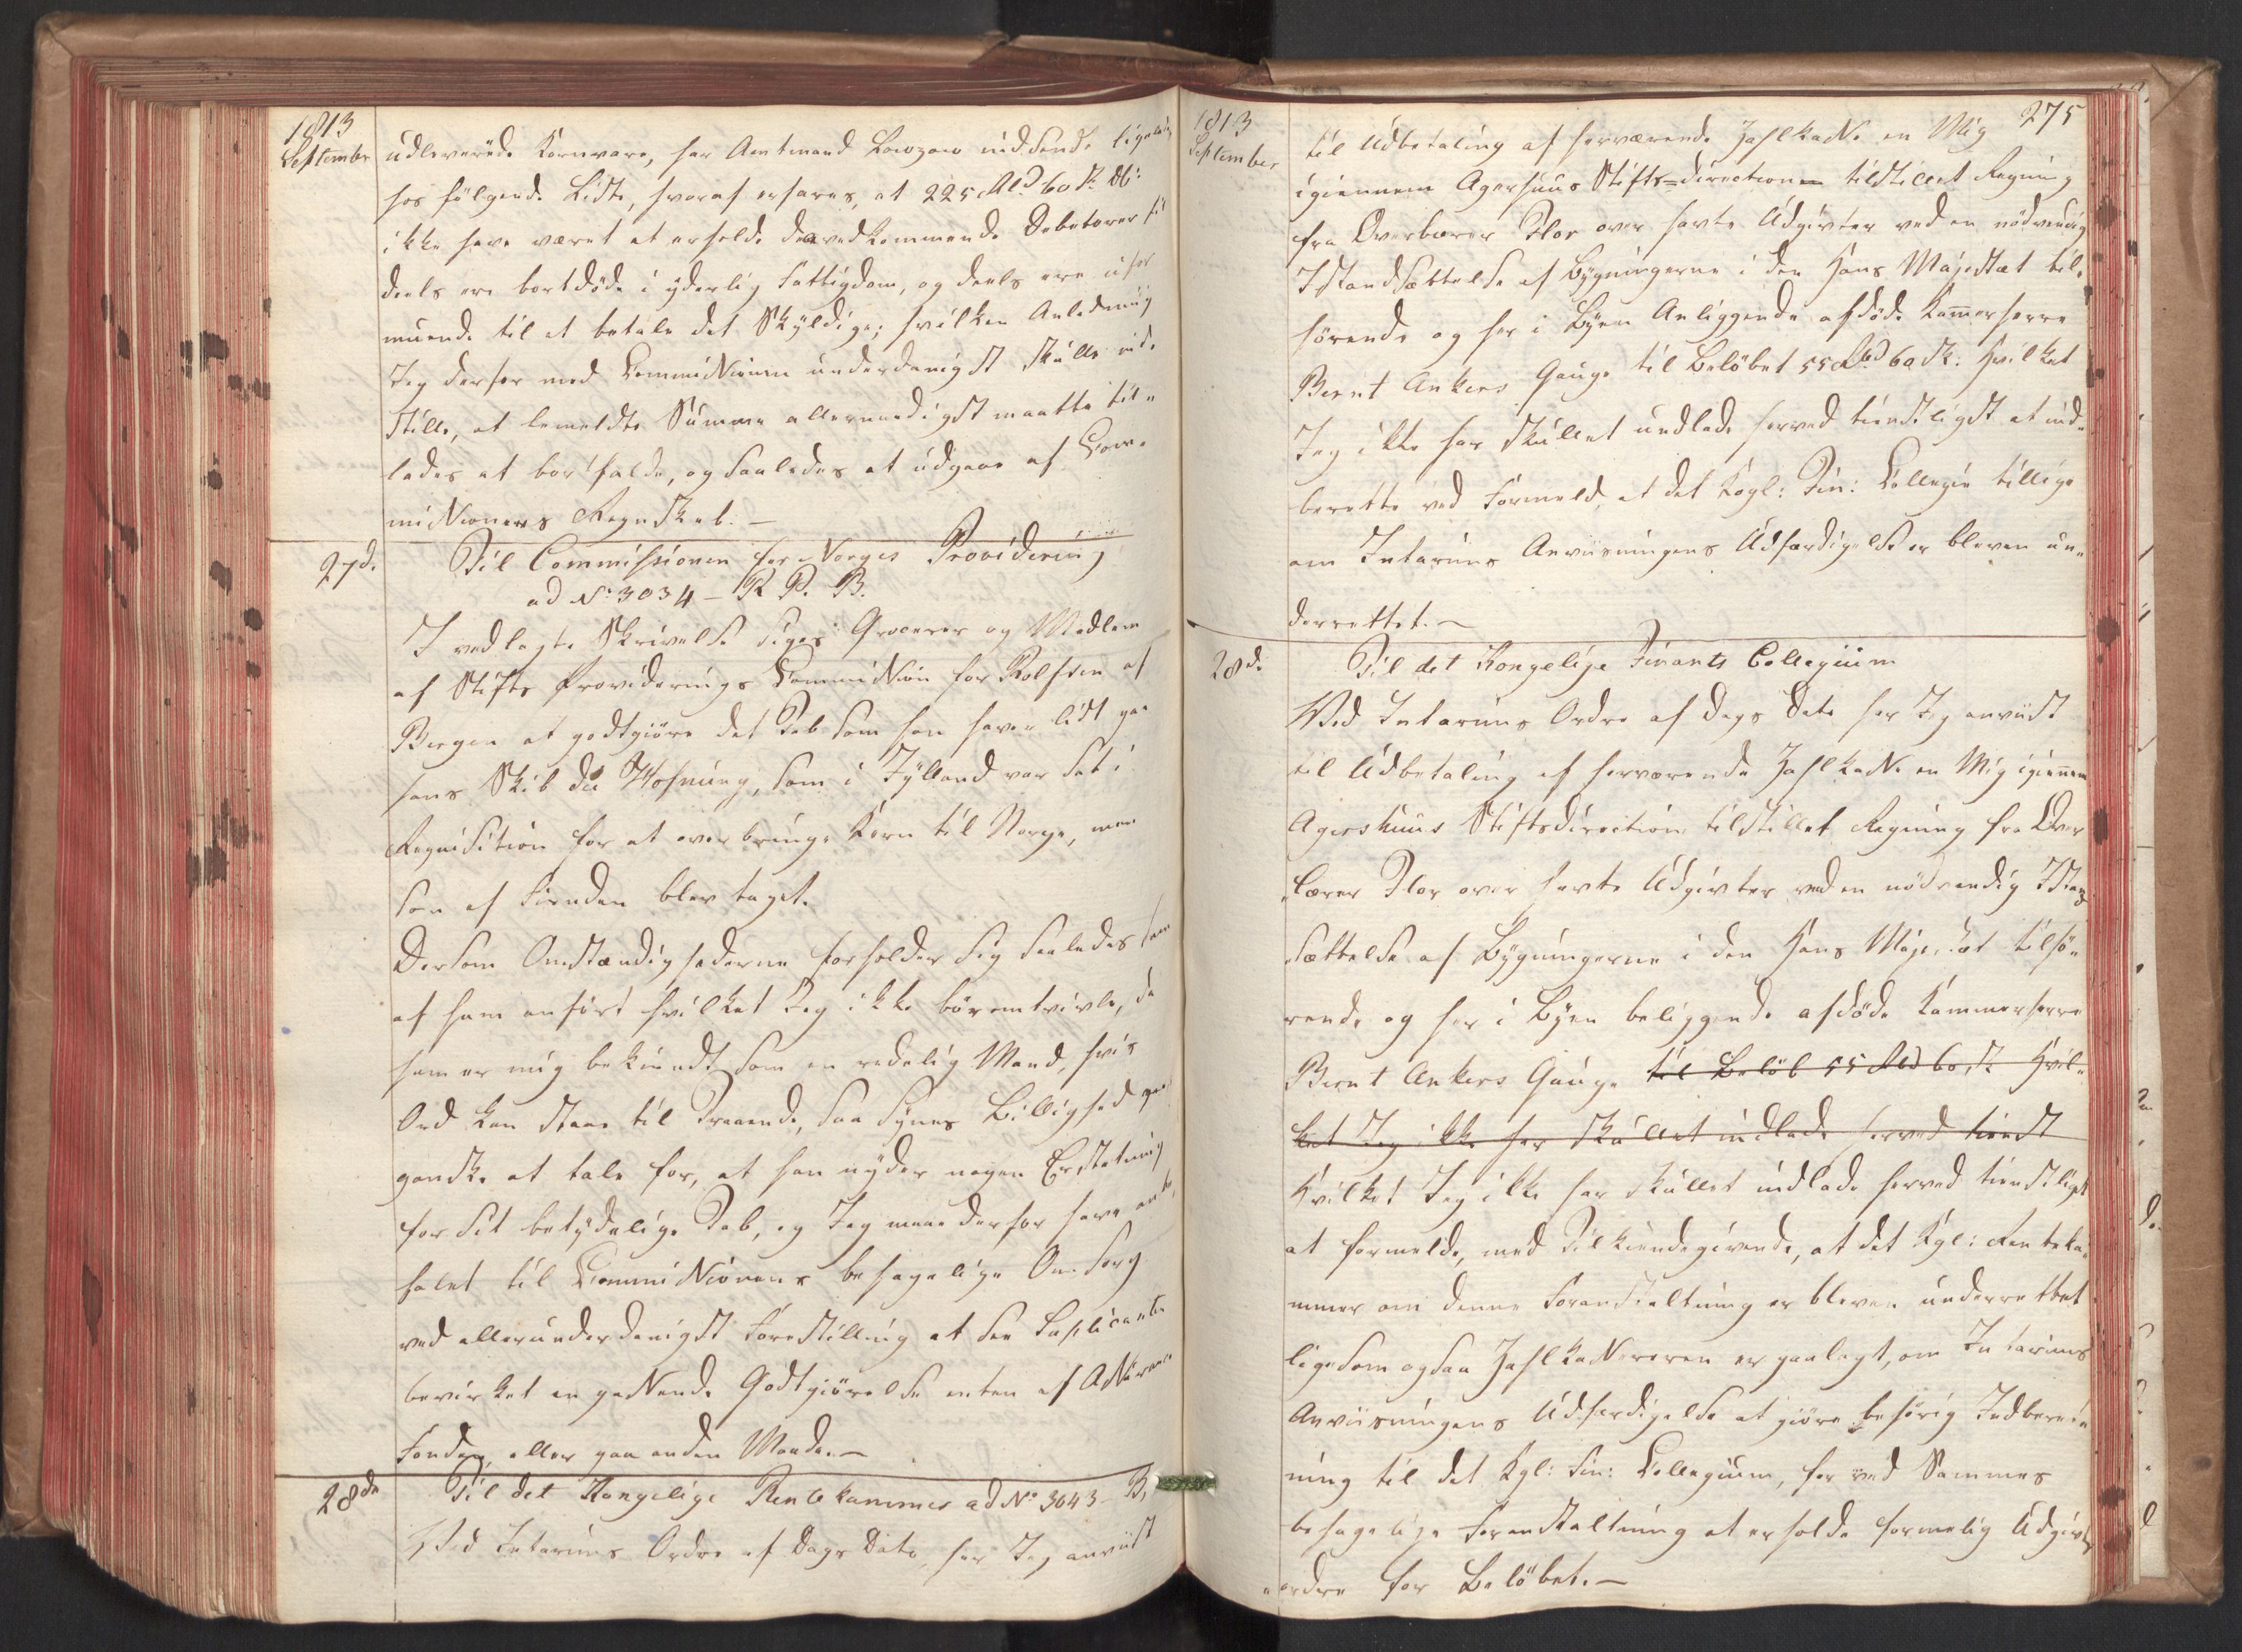 1813
September
udleverede Kornvare, har Amtmand Lowzow indsendt ligeledes
hos følgende Liste, hvoraf erfares, at 225 Rd 60 s. DC:
ikke have været at erholde da vedkommende Debetorer til
deels ere bortdøde i yderlig Fattigdom, og deels ere ufor
muende til at betale det Skyldige; hvilken Anledning
Jeg derfor med Commissionen underdanigst skulle ind-
stille, at bemeldte Summa allernaadigst maatte til-
lades at bortfalde, og saaledes at udgaae af Com-
missionens Regnskab. —
27d.
Til Commissionen for Norges Providering
ad No 3034 – R. P. B.
I vedlagte Skrivelse søges Grocerer og Medlem
af Stifts Providerings Commission her Rolfsen af
Bergen at godtgiøre det Tab som han haver lidt paa
hans Skib die Hofnung, som i Jylland var sat i
Requisition for at overbringe Korn til Norge, men
som af Fienden blev taget.
Dersom Omstændighederne forholder sig saaledes som
af ham anført hvilket Jeg ikke bør omtvivle, da
han er mig bekiendt som en redelig Mand, hvis
Ord kan staae til Troende, saa synes Billighed gan
ganske at tale for, at han nyder nogen Erstatning
for sit betydelige Tab, og Jeg maae derfor have an be-
falet til Commissionens behagelige Omsorg
ved allerunderdanigst Forestilling at see Suplicanten
bevirket en passende Godtgiørelse enten af Assurance
Fonden, eller paa anden Maade. —
28de
Til det Kongelige Rentekammer ad No 3043 – B,
Ved Interims Ordre af Dags Dato, har Jeg anviist
275
1813
September
til Udbetaling af herværende Zahlkasse en Mig
igiennem Agershuus Stifts-direction tilstillet Regning
fra Overlærer Flor over havte Udgivter ved en nødvendig
Istandsættelse af Bygningerne i den Hans Majestæt til-
hørende og her i Byen Anliggende afdøde Kammerherre
Bernt Ankers Gaug til Beløbet 55 Rbd 60 s. Hvilket
Jeg ikke har skullet undlade herved tienstligst at ind-
berette ved Formeld, at det Kogl: Fin: Collegie tillige
om Interims Anviisningens Udfærdigelse er bleven un-
derrettet. —
28d.
Til det Kongelige Finants Collegium
Ved Interims Ordre af Dags Dato har Jeg anviist
til Udbetaling af herværende Zahlkasse en Mig igiennem
Agershuus Stiftsdirection tilstillet Regning fra Over
lærer Flor over havte Udgivter ved en nødvendig Istand
sættelse af Bygningerne i den Hans Majestæt tilhø-
rende og her i Byen beliggende afdøde Kammerherre
Bernt Ankers Gauge til Beløb 55 Rbd 60 s. Hvil-
ket Jeg ikke har skullet undlade herved tienst
Hvilket Jeg ikke har skullet undlade herved tienstligst
at formelde, med Tilkiendegivende, at det Kgl: Renteka-
mmer om denne Foranstaltning er bleven underrettet
ligesom ogsaa Zahlkassereren er paalagt, om Interims
Anviisningens Udfærdigelse at giøre behørig Indberet-
ning til det Kgl: Fin: Collegium, for ved Sammes
behagelige Foranstaltning at erholde formelig Udgivts
ordre for Beløbet. —